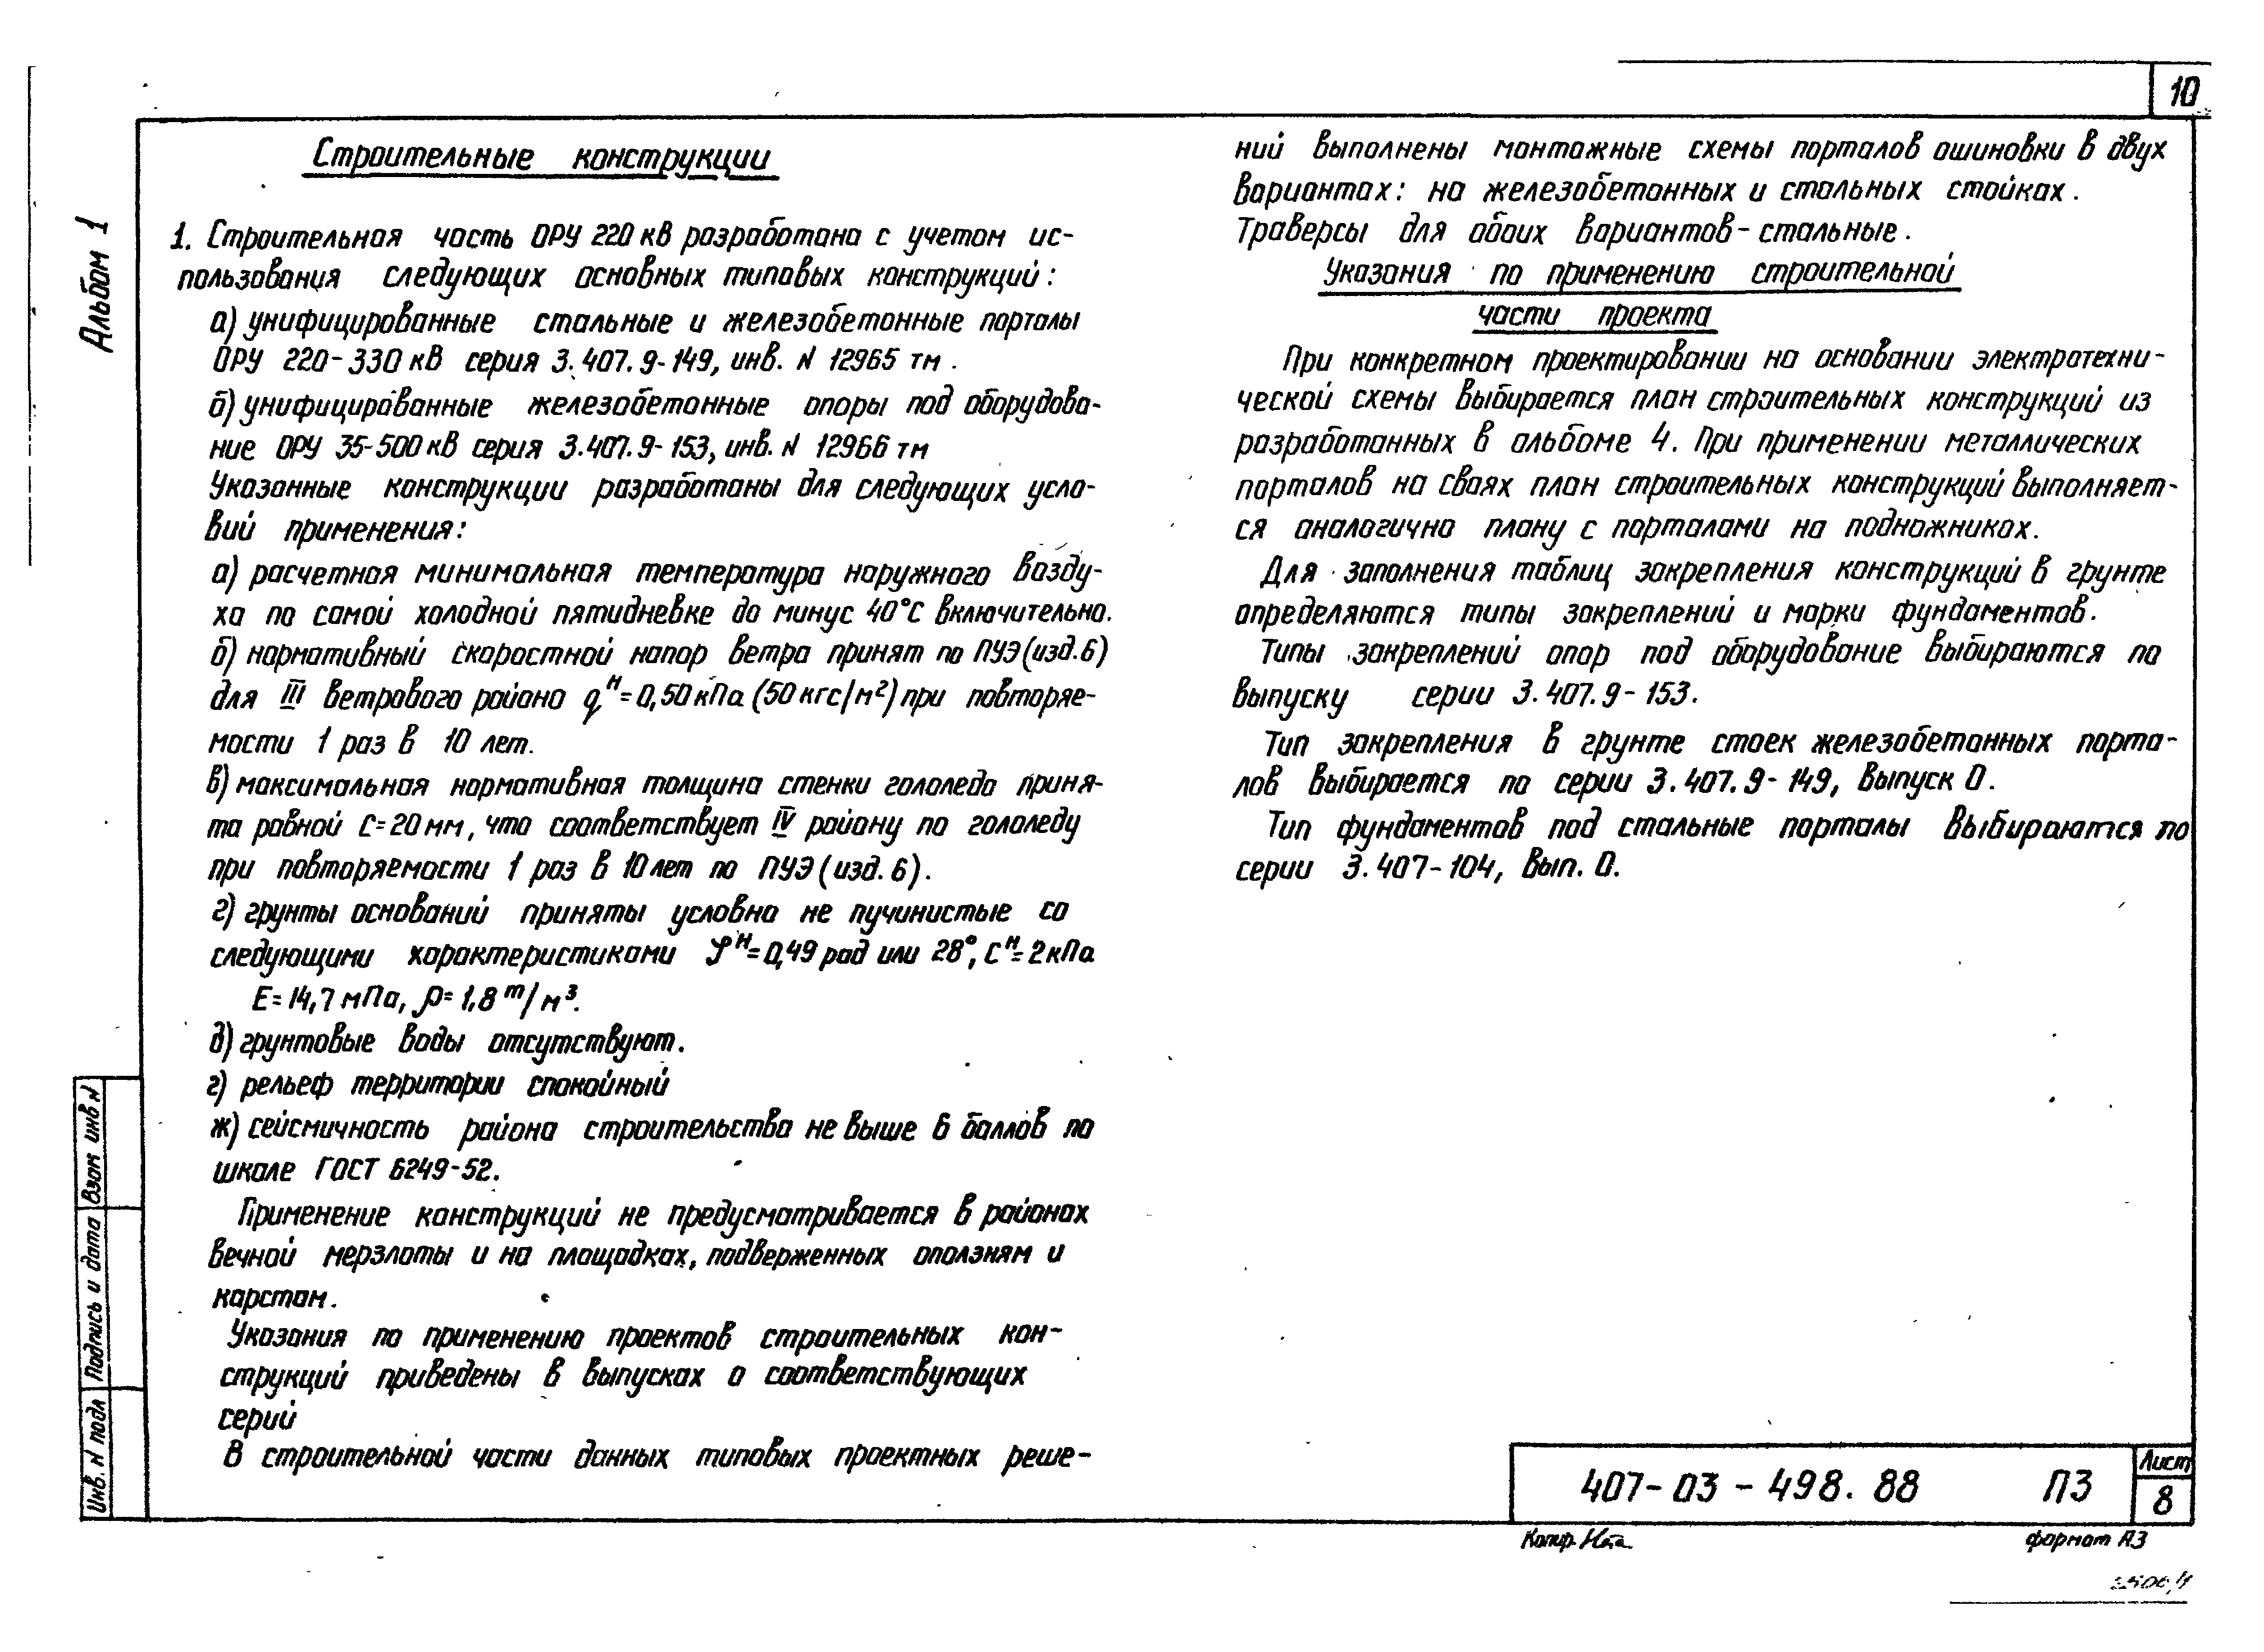 10
Альбом 1
Строительные конструкции
1. Строительная часть ОРУ 220 кВ разработана с учетом ис-
пользования следующих основных типовых конструкций:
а) унифицированные стальные и железобетонные порталы
ОРУ 220-330 кВ серия 3.407.9-149, инв. N 12965 тм.
б) унифицированные железобетонные опоры под оборудова-
ние ОРУ 35-500 кВ серия 3.407.9-153, инв. N 12966 тм
Указанные конструкции разработаны для следующих усло-
вий применения:
а) расчетная минимальная температура наружного возду-
ха по самой холодной пятидневке до минус 40°С включительно.
б) нормативный скоростной напор ветра принят по ПУЭ (изд.6)
для III ветрового района qᴴ=0,50 кПа (50 кгс/м²) при повторяе-
мости 1 раз в 10 лет.
в) максимальная нормативная толщина стенки гололеда приня-
та равной С=20 мм, что соответствует IV району по гололеду
при повторяемости 1 раз в 10 лет по ПУЭ (изд.6).
г) грунты оснований приняты условно не пучинистые со
следующими характеристиками φᴴ=0,49 рад или 28°, Сᴴ=2кПа
Е=14,7 мПа, ρ=1,8 т/м³.
д) грунтовые воды отсутствуют.
г) рельеф территории спокойный
ж) сейсмичность района строительства не выше 6 баллов по
шкале ГОСТ 6249-52.
Применение конструкций не предусматривается в районах
вечной мерзлоты и на площадках, подверженных оползням и
карстам.
Указания по применению проектов строительных кон-
струкций приведены в выпусках 0 соответствующих
серий
В строительной части данных типовых проектных реше-
ний выполнены монтажные схемы порталов ошиновки в двух
вариантах: на железобетонных и стальных стойках.
Траверсы для обоих вариантов - стальные.
Указания по применению строительной
части проекта
При конкретном проектировании на основании электротехни-
ческой схемы выбирается план строительных конструкций из
разработанных в альбоме 4. При применении металлических
порталов на сваях план строительных конструкций выполняет-
ся аналогично плану с порталами на подножниках.
Для заполнения таблиц закрепления конструкций в грунте
определяются типы закреплений и марки фундаментов.
Типы закреплений опор под оборудование выбираются по
выпуску серии 3.407.9-153.
Тип закрепления в грунте стоек железобетонных порта-
лов выбирается по серии 3.407.9-149, выпуск 0.
Тип фундаментов под стальные порталы выбираются по
серии 3.407-104, вып. 0.
Взам инв N
Подпись и дата
Инв. N подл
407-03-498.88 ПЗ
Лист
8
Копир.
формат А3